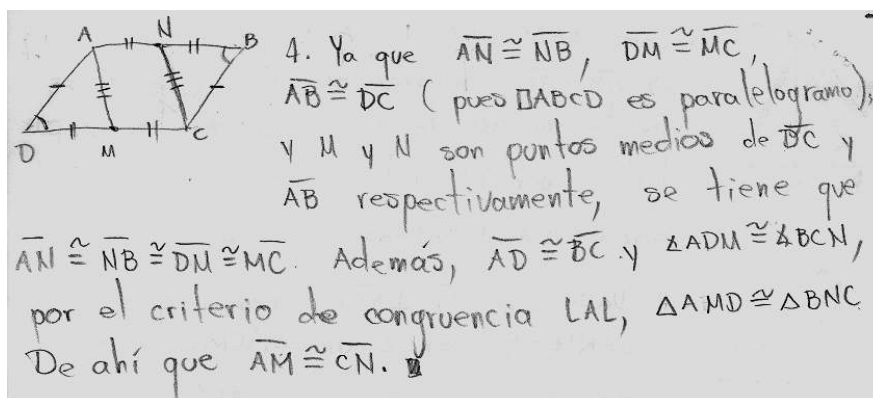 A N B
D M C
4. Ya que AN ≅ NB, DM ≅ MC,
AB ≅ DC (pues □ABCD es paralelogramo),
y M y N son puntos medios de DC y
AB respectivamente, se tiene que
AN ≅ NB ≅ DM ≅ MC. Además, AD ≅ BC y ∡ADM ≅ ∡BCN,
por el criterio de congruencia LAL, △AMD ≅ △BNC
De ahí que AM ≅ CN.